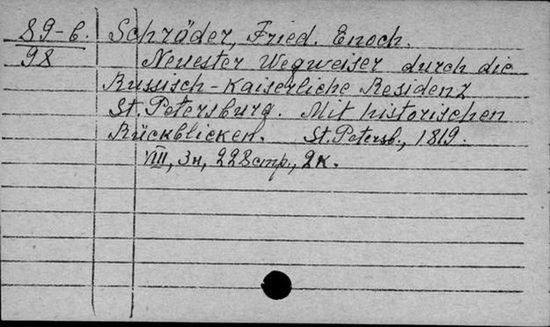 89-6.
98
Schräder, Fried. Enoch.
Neuester Wegweiser durch die
Russisch-Kaiserliche Residenz
St. Petersburg. Mit historischen
Rückblicken. St. Petersb., 1819.
VIII, 3н, 228стр., 2к.